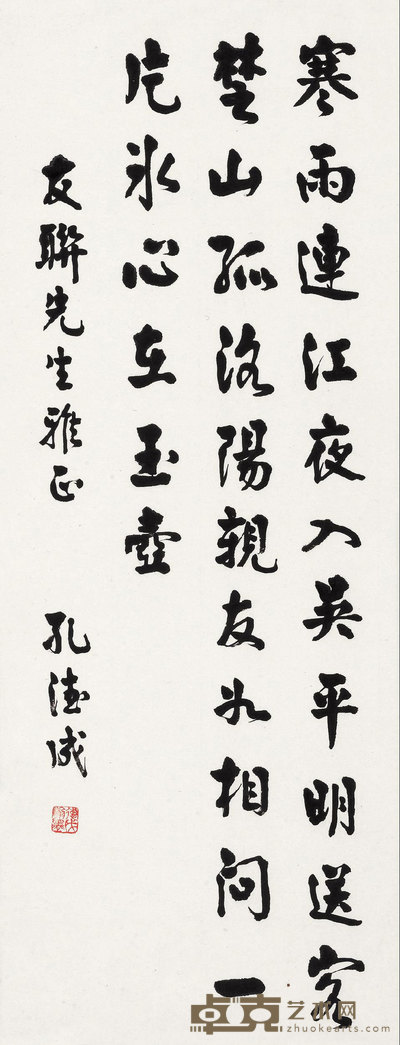 寒雨連江夜入吳平明送客
楚山孤洛陽親友如相問一
片冰心在玉壺
友聯先生雅正 孔德成
卓克艺术网
zhuokearts.com